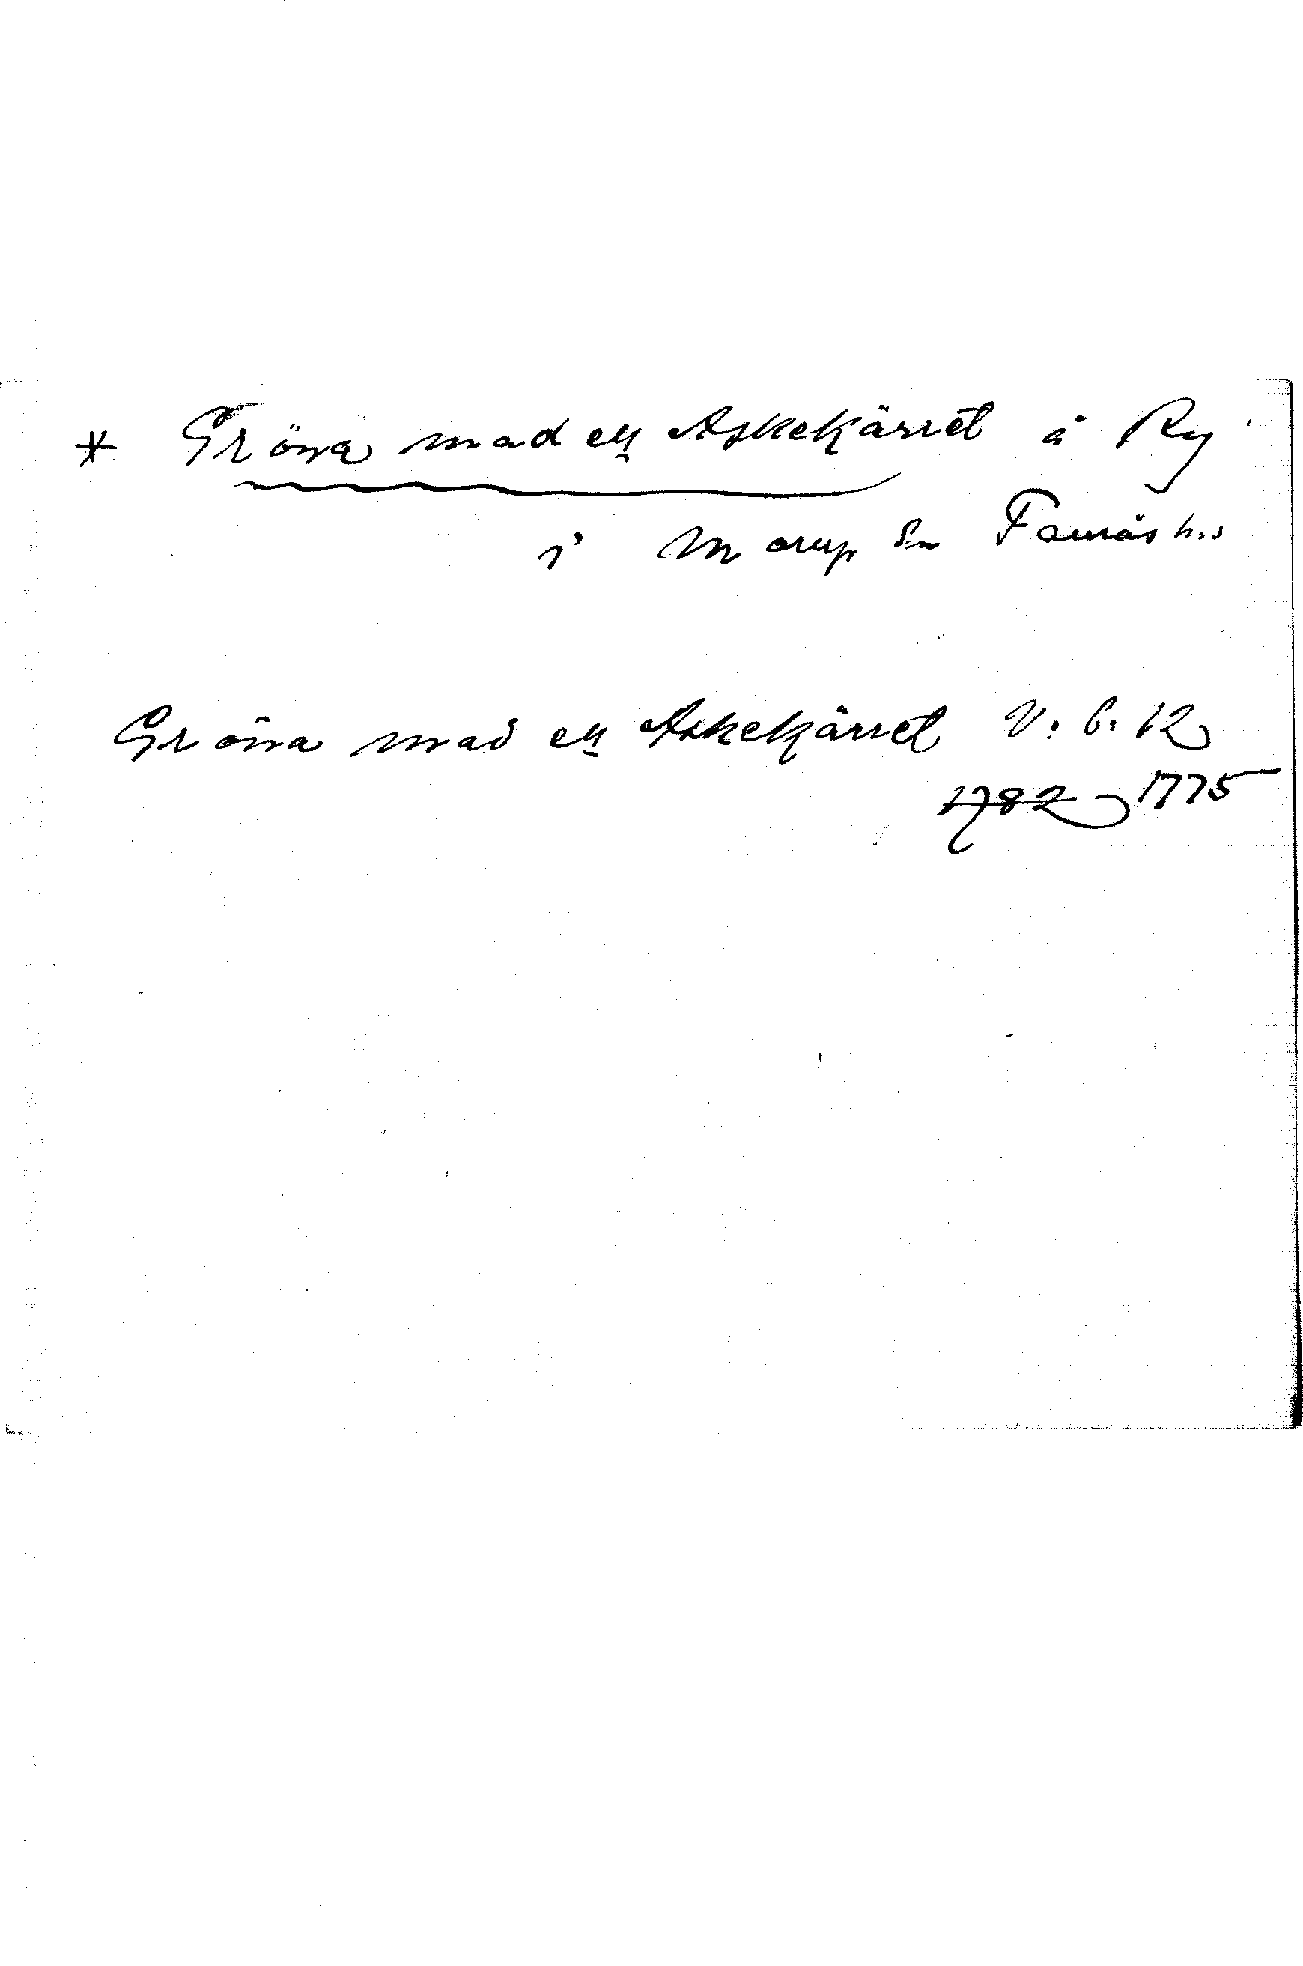 * Gröna mad ell Askekärret å Ry
i Morup Sn Faurås h.
Gröna mad ell Askekärret V. 6. 12
1782 1775